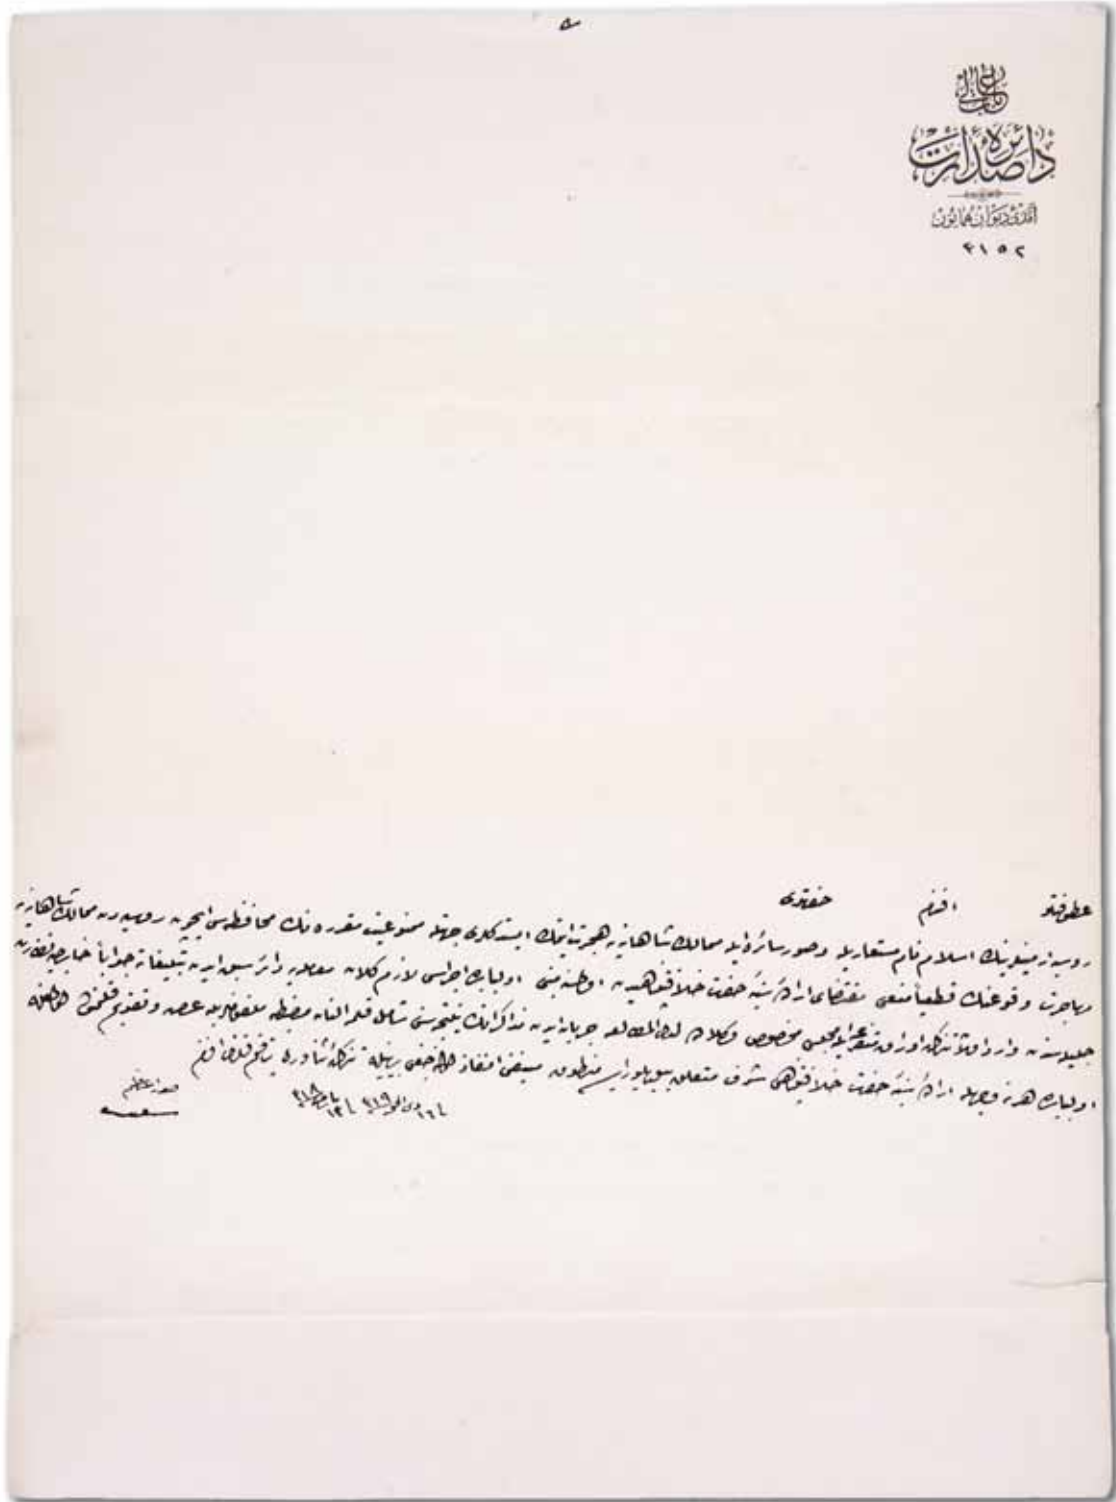 باب عالی
دائره صدارت
آمدی دیوان همایون
٣١٥٢
عطوفتلو افندم حضرتلری
روسیه موسویلرینك اسلام نام مستعاریله وصور سائره ایله ممالك شاهانه‌یه هجرت ایتمك ایستدكلری جهتله ممنوعیت مقرره‌نك محافظه‌سی ایچون روسیه‌دن ممالك شاهانه‌یه
مهاجرت وقوعنك قطعیاً منعی مقتضای اراده سنیه حضرت خلافتپناهیدن اولمسنه مبنی اولبابده اجراسی لازم كلان معامله‌یه دائر سبق ایدن تبلیغاته جواباً خارجیه نظارت
جلیله‌سندن وارد اولان تذكره اوراق متفرعه‌سیله مجلس مخصوص وكلاده لدی المطالعه جریان ایدن مذاكراتك نتیجه‌سنی شامل قلمه آلنان مضبطه ملفوفلریله عرض وتقدیم قلنمش اولمغله
اولبابده هر نه وجهله اراده سنیه حضرت خلافتپناهی شرف متعلق بیوریلور ایسه منطوق منیفی انفاذ اولنه‌جغی بیانیله تذكره ثناوری ترقیم قلندی افندم
صدر اعظم
سعید